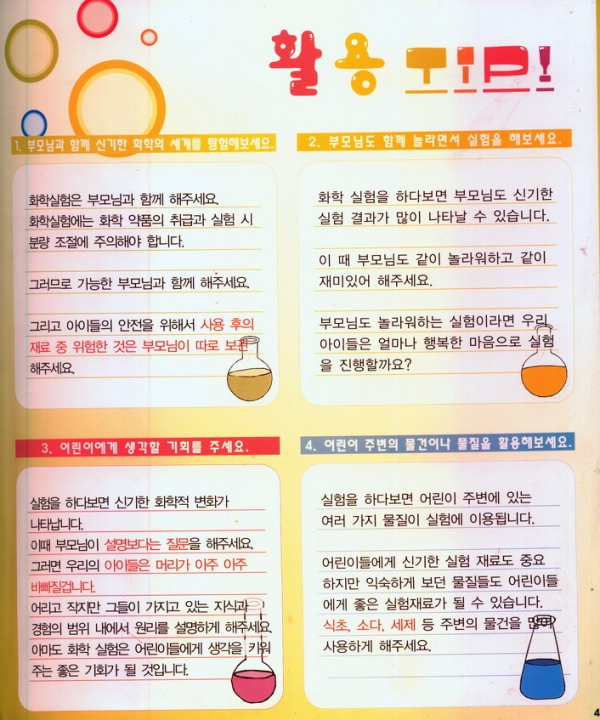 활용 TIP!
1. 부모님과 함께 신기한 화학의 세계를 탐험해보세요.
화학실험은 부모님과 함께 해주세요.
화학실험에는 화학 약품의 취급과 실험 시
분량 조절에 주의해야 합니다.
그러므로 가능한 부모님과 함께 해주세요.
그리고 아이들의 안전을 위해서 사용 후의
재료 중 위험한 것은 부모님이 따로 보관
해주세요.
2. 부모님도 함께 놀라면서 실험을 해보세요.
화학 실험을 하다보면 부모님도 신기한
실험 결과가 많이 나타날 수 있습니다.
이 때 부모님도 같이 놀라워하고 같이
재미있어 해주세요.
부모님도 놀라워하는 실험이라면 우리
아이들은 얼마나 행복한 마음으로 실험
을 진행할까요?
3. 어린이에게 생각할 기회를 주세요.
실험을 하다보면 신기한 화학적 변화가
나타납니다.
이때 부모님이 설명보다는 질문을 해주세요.
그러면 우리의 아이들은 머리가 아주 아주
바빠질겁니다.
어리고 작지만 그들이 가지고 있는 지식과
경험의 범위 내에서 원리를 설명하게 해주세요.
아마도 화학 실험은 어린이들에게 생각을 키워
주는 좋은 기회가 될 것입니다.
4. 어린이 주변의 물건이나 물질을 활용해보세요.
실험을 하다보면 어린이 주변에 있는
여러 가지 물질이 실험에 이용됩니다.
어린이들에게 신기한 실험 재료도 중요
하지만 익숙하게 보던 물질들도 어린이들
에게 좋은 실험재료가 될 수 있습니다.
식초, 소다, 세제 등 주변의 물건을 많이
사용하게 해주세요.
4